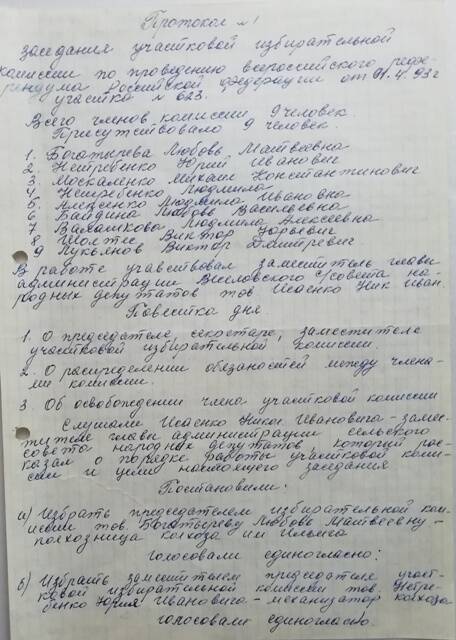 Протокол №1
заседания участковой избирательной
комиссии по проведению всероссийского рефе-
рендума Российской Федерации от 91.4.93г
участка № 623.
Всего членов комиссии 9 человек.
Присутствовало 9 человек.
1. Богатырева Любовь Матвеевна
2. Нетребенко Юрий Иванович
3. Москаленко Михаил Константинович
4. Нетребенко Людмила
5. Алексенко Людмила Ивановна
6 Байдина Любовь Васильевна
7 Людмила Алексеевна
8 Виктор Юрьевич
9 Лукьянов Виктор Дмитревич
В работе учавствовал заместитель главы
администрации Веселовского с/совета на-
родных депутатов тов Исаенко Ник Иван.
Повестка дня.
1. О председателе секретаре, заместителе
участковой избирательной комиссии.
2. О распределении обязаностей между члена-
ми комиссии.
3. Об освобождении члена участковой комиссии
Слушали Исаенко Никол Ивановича - замес-
тителе главы администрации сельского
совета народных депутатов который рас-
казал о порядке работы участковой коми-
сии и цели настоящего заседания
Постановили:
а) Избрать председателем избирательной ком-
иссии тов. Богатыреву Любовь Матвеевну -
колхоза им Ильича
Голосовали единогласно:
б) Избрать заместителем председателя участ-
ковой избирательной комиссии тов. Нетре-
бенко Юрия Ивановича - механизатор колхоза
Голосовали единогласно.